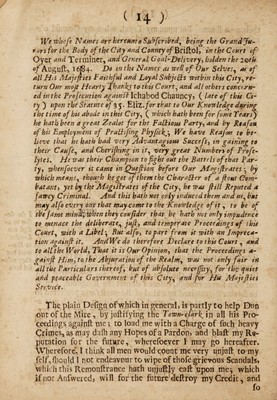 ( 14 )
We whose Names are hereunto Subscribed, being the Grand Ju-
rors for the Body of the City and County of Bristol, in the Court of
Oyer and Terminer, and General Goal-Delivery, holden the 20th
of August, 1684. Do in the Names as well of Our Selves, as of
all His Majesties Faithful and Loyal Subjects within this City, re-
turn Our most Hearty Thanks to this Court, and all others concern-
ed in the Prosecution against Ichabod Chauncy, ( late of this Ci-
ty ) upon the Statute of 35. Eliz. for that to Our Knowledge during
the time of his abode in this City, ( which hath been for some Years )
he hath been a great Zealot for the Factious Party, and by Reason
of his Employment of Practising Physick, We have Reason to be-
lieve that he hath had very Advantagious Success, in gaining to
their Cause, and Cherishing in it, very great Numbers of Prose-
lytes. He was their Champion to fight out the Battels of that Par-
ty, whensoever it came in Question before Our Magistrates; by
which means, though he got of them the Character of a stout Com-
batant, yet by the Magistrates of the City, he was still Reputed a
sawcy Criminal. And this hath not only induced them and us, but
may also every one that may come to the Knowledge of it, to be of
the same mind; when they consider that he hath not only impudence
to menace the deliberate, just, and temperate Proceedings of this
Court, with a Libel; But also, to part from it with an Impreca-
tion against it. And We do therefore Declare to this Court, and
to all the World, That it is Our Opinion, that the Proceedings a-
gainst Him, to the Abjuration of the Realm, was not only fair in
all the Particulars thereof, but of absolute necessity, for the quiet
and peaceable Government of this City, and for His Majesties
Service.
The plain Design of which in general, is partly to help Dun
out of the Mire, by justifying the Town-clark in all his Pro-
ceedings against me; to load me with a Charge of such heavy
Crimes, as may dash any Hopes of a Pardon, and blast my Re-
putation for the future, wheresoever I may go hereafter.
Wherefore, I think all men would count me very unjust to my
self, should I not endeavour to wipe off those grievous Scandals,
which this Remonstrance hath unjustly cast upon me; which
if not Answered, will for the future destroy my Credit, and
so